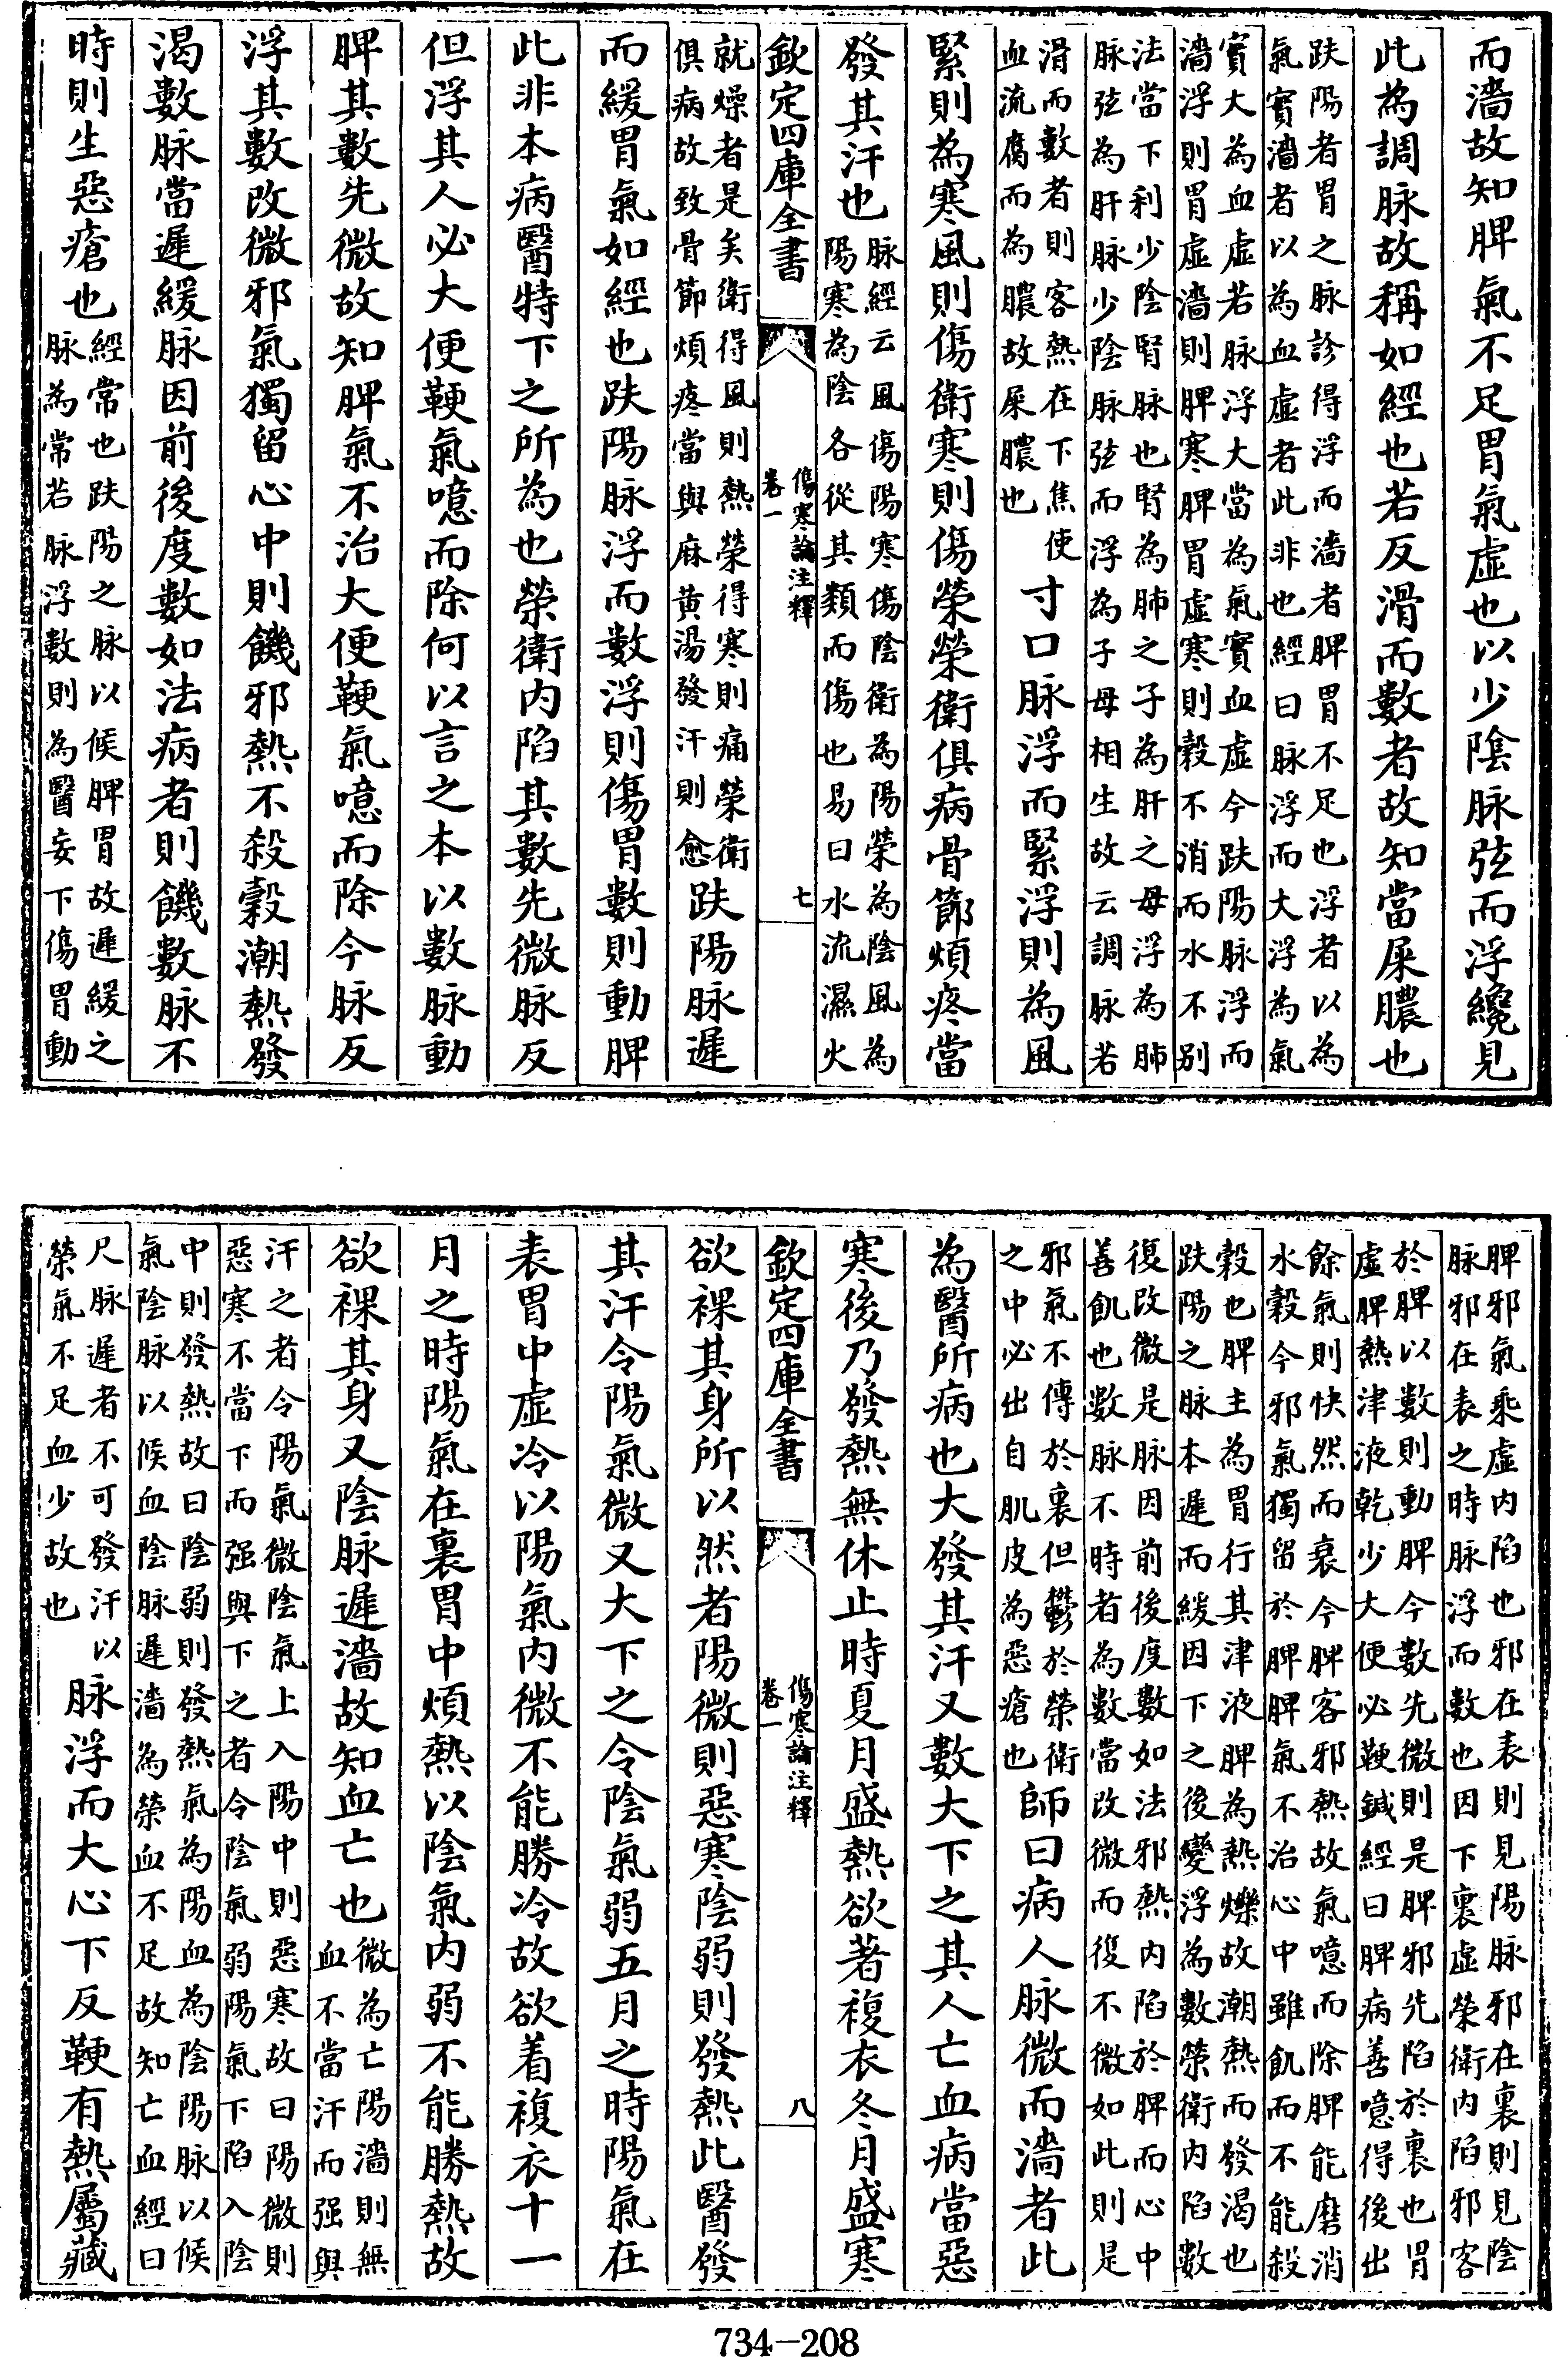 而濇故知脾氣不足胃氣虛也以少陰脉弦而浮纔見
此為調脉故稱如經也若反滑而數者故知當屎膿也
趺陽者胃之脉診得浮而濇者脾胃不足也浮者以為
氣實濇者以為血虛者此非也經曰脉浮而大浮為氣
實大為血虛若脉浮大當為氣實血虛今趺陽脉浮而
濇浮則胃虛濇則脾寒脾胃虛寒則穀不消而水不别
法當下利少陰腎脉也腎為肺之子為肝之母浮為肺
脉弦為肝脉少陰脉弦而浮為子母相生故云調脉若
滑而數者則客熱在下焦使
血流腐而為膿故屎膿也
寸口脉浮而緊浮則為風
緊則為寒風則傷衛寒則傷榮榮衛俱病骨節煩疼當
發其汗也
脉經云風傷陽寒傷陰衛為陽榮為陰風為
陽寒為陰各從其類而傷也易曰水流濕火
欽定四庫全書
傷寒論注釋
卷一
七
就燥者是矣衛得風則熱榮得寒則痛榮衛
俱病故致骨節煩疼當與麻黄湯發汗則愈
趺陽脉遲
而緩胃氣如經也趺陽脉浮而數浮則傷胃數則動脾
此非本病醫特下之所為也榮衛内陷其數先微脉反
但浮其人必大便鞕氣噫而除何以言之本以數脉動
脾其數先微故知脾氣不治大便鞕氣噫而除今脉反
浮其數改微邪氣獨留心中則饑邪熱不殺穀潮熱發
渴數脉當遲緩脉因前後度數如法病者則饑數脉不
時則生惡瘡也
經常也趺陽之脉以候脾胃故遲緩之
脉為常若脉浮數則為醫妄下傷胃動
脾邪氣乘虛内陷也邪在表則見陽脉邪在裏則見陰
脉邪在表之時脉浮而數也因下裏虛榮衛内陷邪客
於脾以數則動脾今數先微則是脾邪先陷於裏也胃
虛脾熱津液乾少大便必鞕鍼經曰脾病善噫得後出
餘氣則快然而衰今脾客邪熱故氣噫而除脾能磨消
水穀今邪氣獨留於脾脾氣不治心中雖飢而不能殺
穀也脾主為胃行其津液脾為熱爍故潮熱而發渴也
趺陽之脉本遲而緩因下之後變浮為數榮衛内陷數
復改微是脉因前後度數如法邪熱内陷於脾而心中
善飢也數脉不時者為數當改微而復不微如此則是
邪氣不傳於裏但鬱於榮衛
之中必出自肌皮為惡瘡也
師曰病人脉微而濇者此
為醫所病也大發其汗又數大下之其人亡血病當惡
寒後乃發熱無休止時夏月盛熱欲著複衣冬月盛寒
欽定四庫全書
傷寒論注釋
卷一
八
欲裸其身所以然者陽微則惡寒陰弱則發熱此醫發
其汗令陽氣微又大下之令陰氣弱五月之時陽氣在
表胃中虛冷以陽氣内微不能勝冷故欲着複衣十一
月之時陽氣在裏胃中煩熱以陰氣内弱不能勝熱故
欲裸其身又陰脉遲濇故知血亡也
微為亡陽濇則無
血不當汗而强與
汗之者令陽氣微陰氣上入陽中則惡寒故曰陽微則
惡寒不當下而强與下之者令陰氣弱陽氣下陷入陰
中則發熱故曰陰弱則發熱氣為陽血為陰陽脉以候
氣陰脉以候血陰脉遲濇為榮血不足故知亡血經曰
尺脉遲者不可發汗以
榮氣不足血少故也
脉浮而大心下反鞕有熱屬藏
734-208